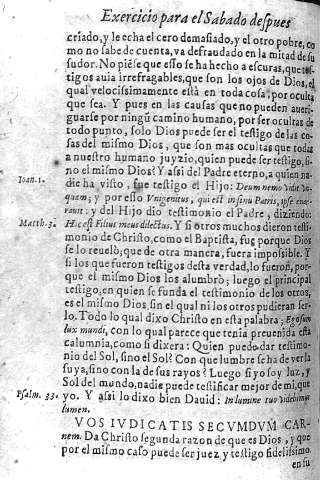 Exercicio para el Sabado despues
criado, y le echa el cero demasiado, y el otro pobre, co
mo no sabe de cuenta, va defraudado en la mitad de su
sudor. No piēse que esso se ha hecho a escuras, que tes-
tigos auia irrefragables, que son los ojos de Dios, el
qual velocissimamente està en toda cosa, por oculta
que sea. Y pues en las causas que no pueden aueri-
guarse por ningū camino humano, por ser ocultas de
todo punto, solo Dios puede ser el testigo de las co-
sas del mismo Dios, que son mas ocultas que todas
a nuestro humano juyzio, quien puede ser testigo, si-
no el mismo Dios? Y assi del Padre eterno, a quien na-
Ioan. 1.
die ha visto, fue testigo el Hijo: Deum nemo vidit vn-
quam; y por esso Vnigenitus, qui est in sinu Patris, ipse enar-
rauit: y del Hijo dio testimonio el Padre, diziendo:
Matth. 3.
Hic est Filius meus dilectus. Y si otros muchos dieron testi-
monio de Christo, como el Baptista, fue porque Dios
se lo reuelò; que de otra manera, fuera impossible. Y
si los que fueron testigos desta verdad, lo fueron, por-
que el mismo Dios los alumbrò; luego el principal
testigo, en quien se funda el testimonio de los otros,
es el mismo Dios, sin el qual ni los otros pudieran ser-
lo. Todo lo qual dixo Christo en esta palabra; Ego sum
lux mundi, con lo qual parece que tenia preuenida esta
calumnia, como si dixera: Quien puede dar testimo-
nio del Sol, sino el Sol? Con que lumbre se ha de ver la
suya, sino con la de sus rayos? Luego si yo soy luz, y
Sol del mundo, nadie puede testificar mejor de mi, que
Psalm. 35.
yo. Y assi lo dixo bien Dauid: In lumine tuo videbimus
lumen.
VOS IVDICATIS SECVMDVM CAR-
nem. Da Christo segunda razon de que es Dios, y que
por el mismo caso puede ser juez y testigo fidelissimo
en su